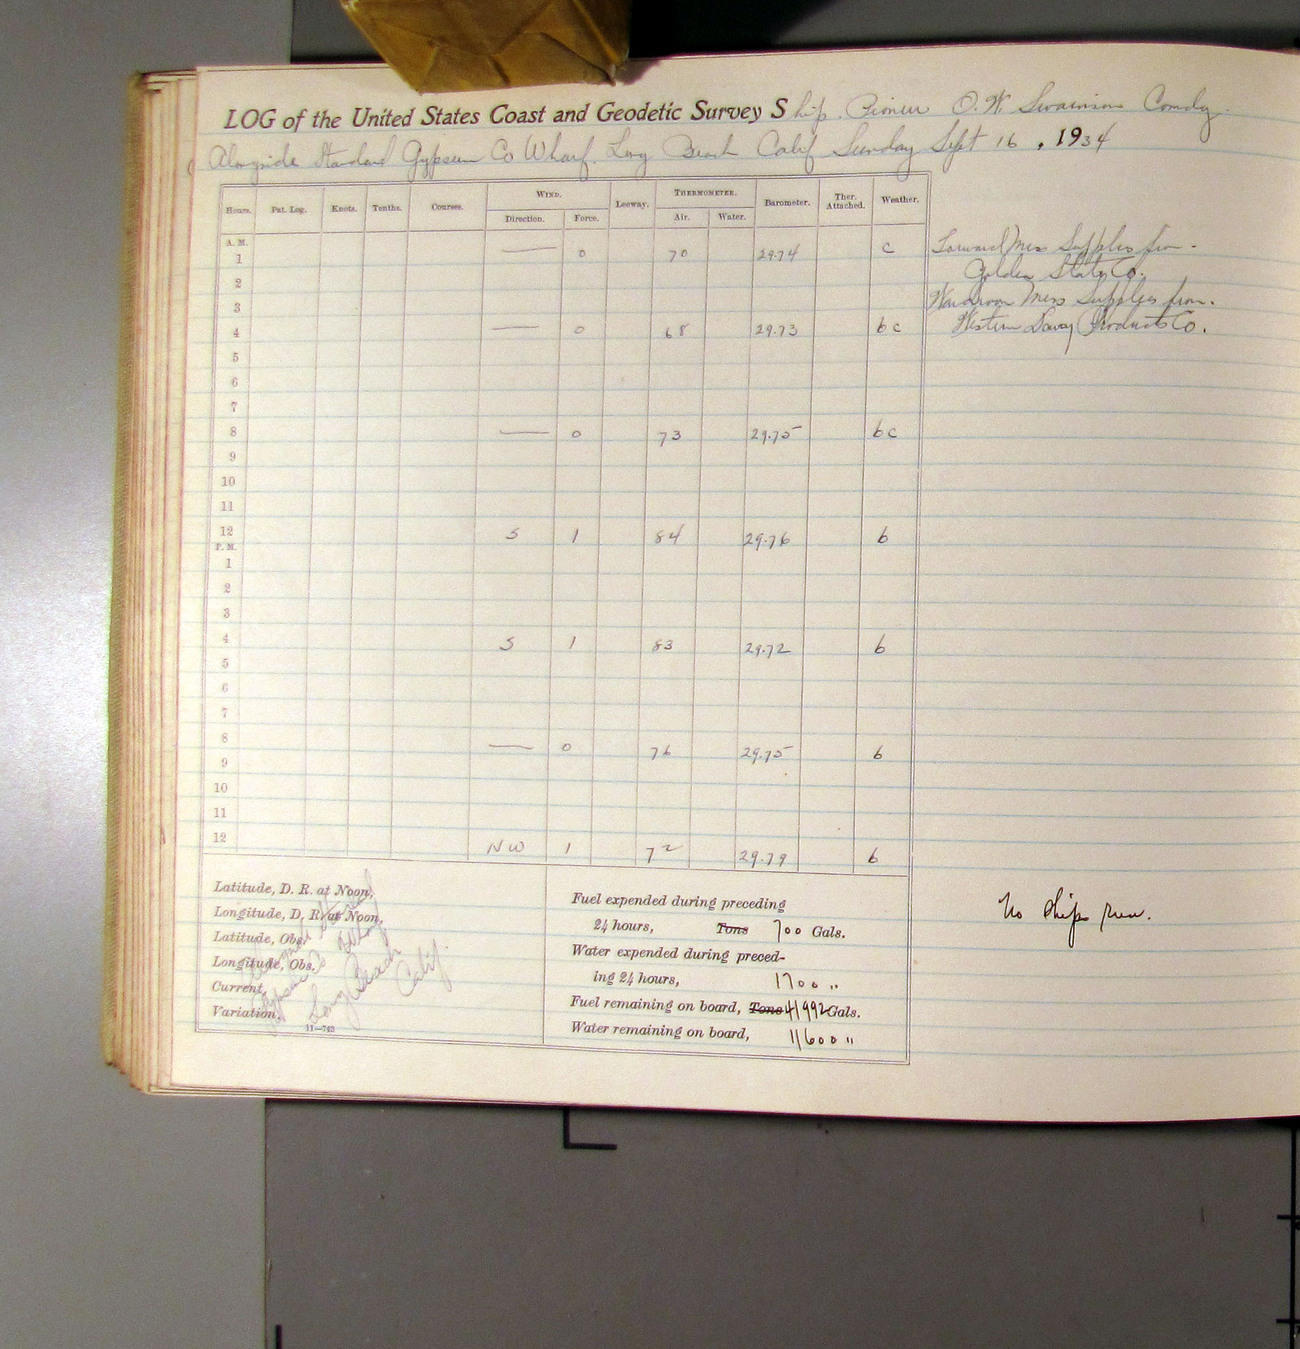 LOG of the United States Coast and Geodetic Survey Ship Pioneer O. W. Swainson Comdg.
Alongside Standard Gypsum Co Wharf. Long Beach Calif Sunday Sept 16, 1934
Hours. Pat. Log. Knots. Tenths. Courses. WIND. Direction. Force. Leeway. THERMOMETER. Air. Water. Barometer. Ther. Attached. Weather.
A. M.
1 — 0 70 29.74 c
Forward Mess Supplies from
2
Golden State Co.
3
Wardroom Mess Supplies from.
4 — 0 68 29.73 bc
Western Dairy Products Co.
5
6
7
8 — 0 73 29.75 bc
9
10
11
12 S 1 84 29.76 b
P. M.
1
2
3
4 S 1 83 29.72 b
5
6
7
8 — 0 76 29.75 b
9
10
11
12 NW 1 72 29.79 b
Latitude, D. R. at Noon,
Longitude, D. R. at Noon,
Latitude, Obs.
Longitude, Obs.
Current,
Variation,
11—763
Alongside Standard
Gypsum Co Wharf
Long Beach
Calif.
Fuel expended during preceding
24 hours, Tons 700 Gals.
Water expended during preced-
ing 24 hours, 1700 "
Fuel remaining on board, Tons 41992 Gals.
Water remaining on board, 11600 "
No Ships run.